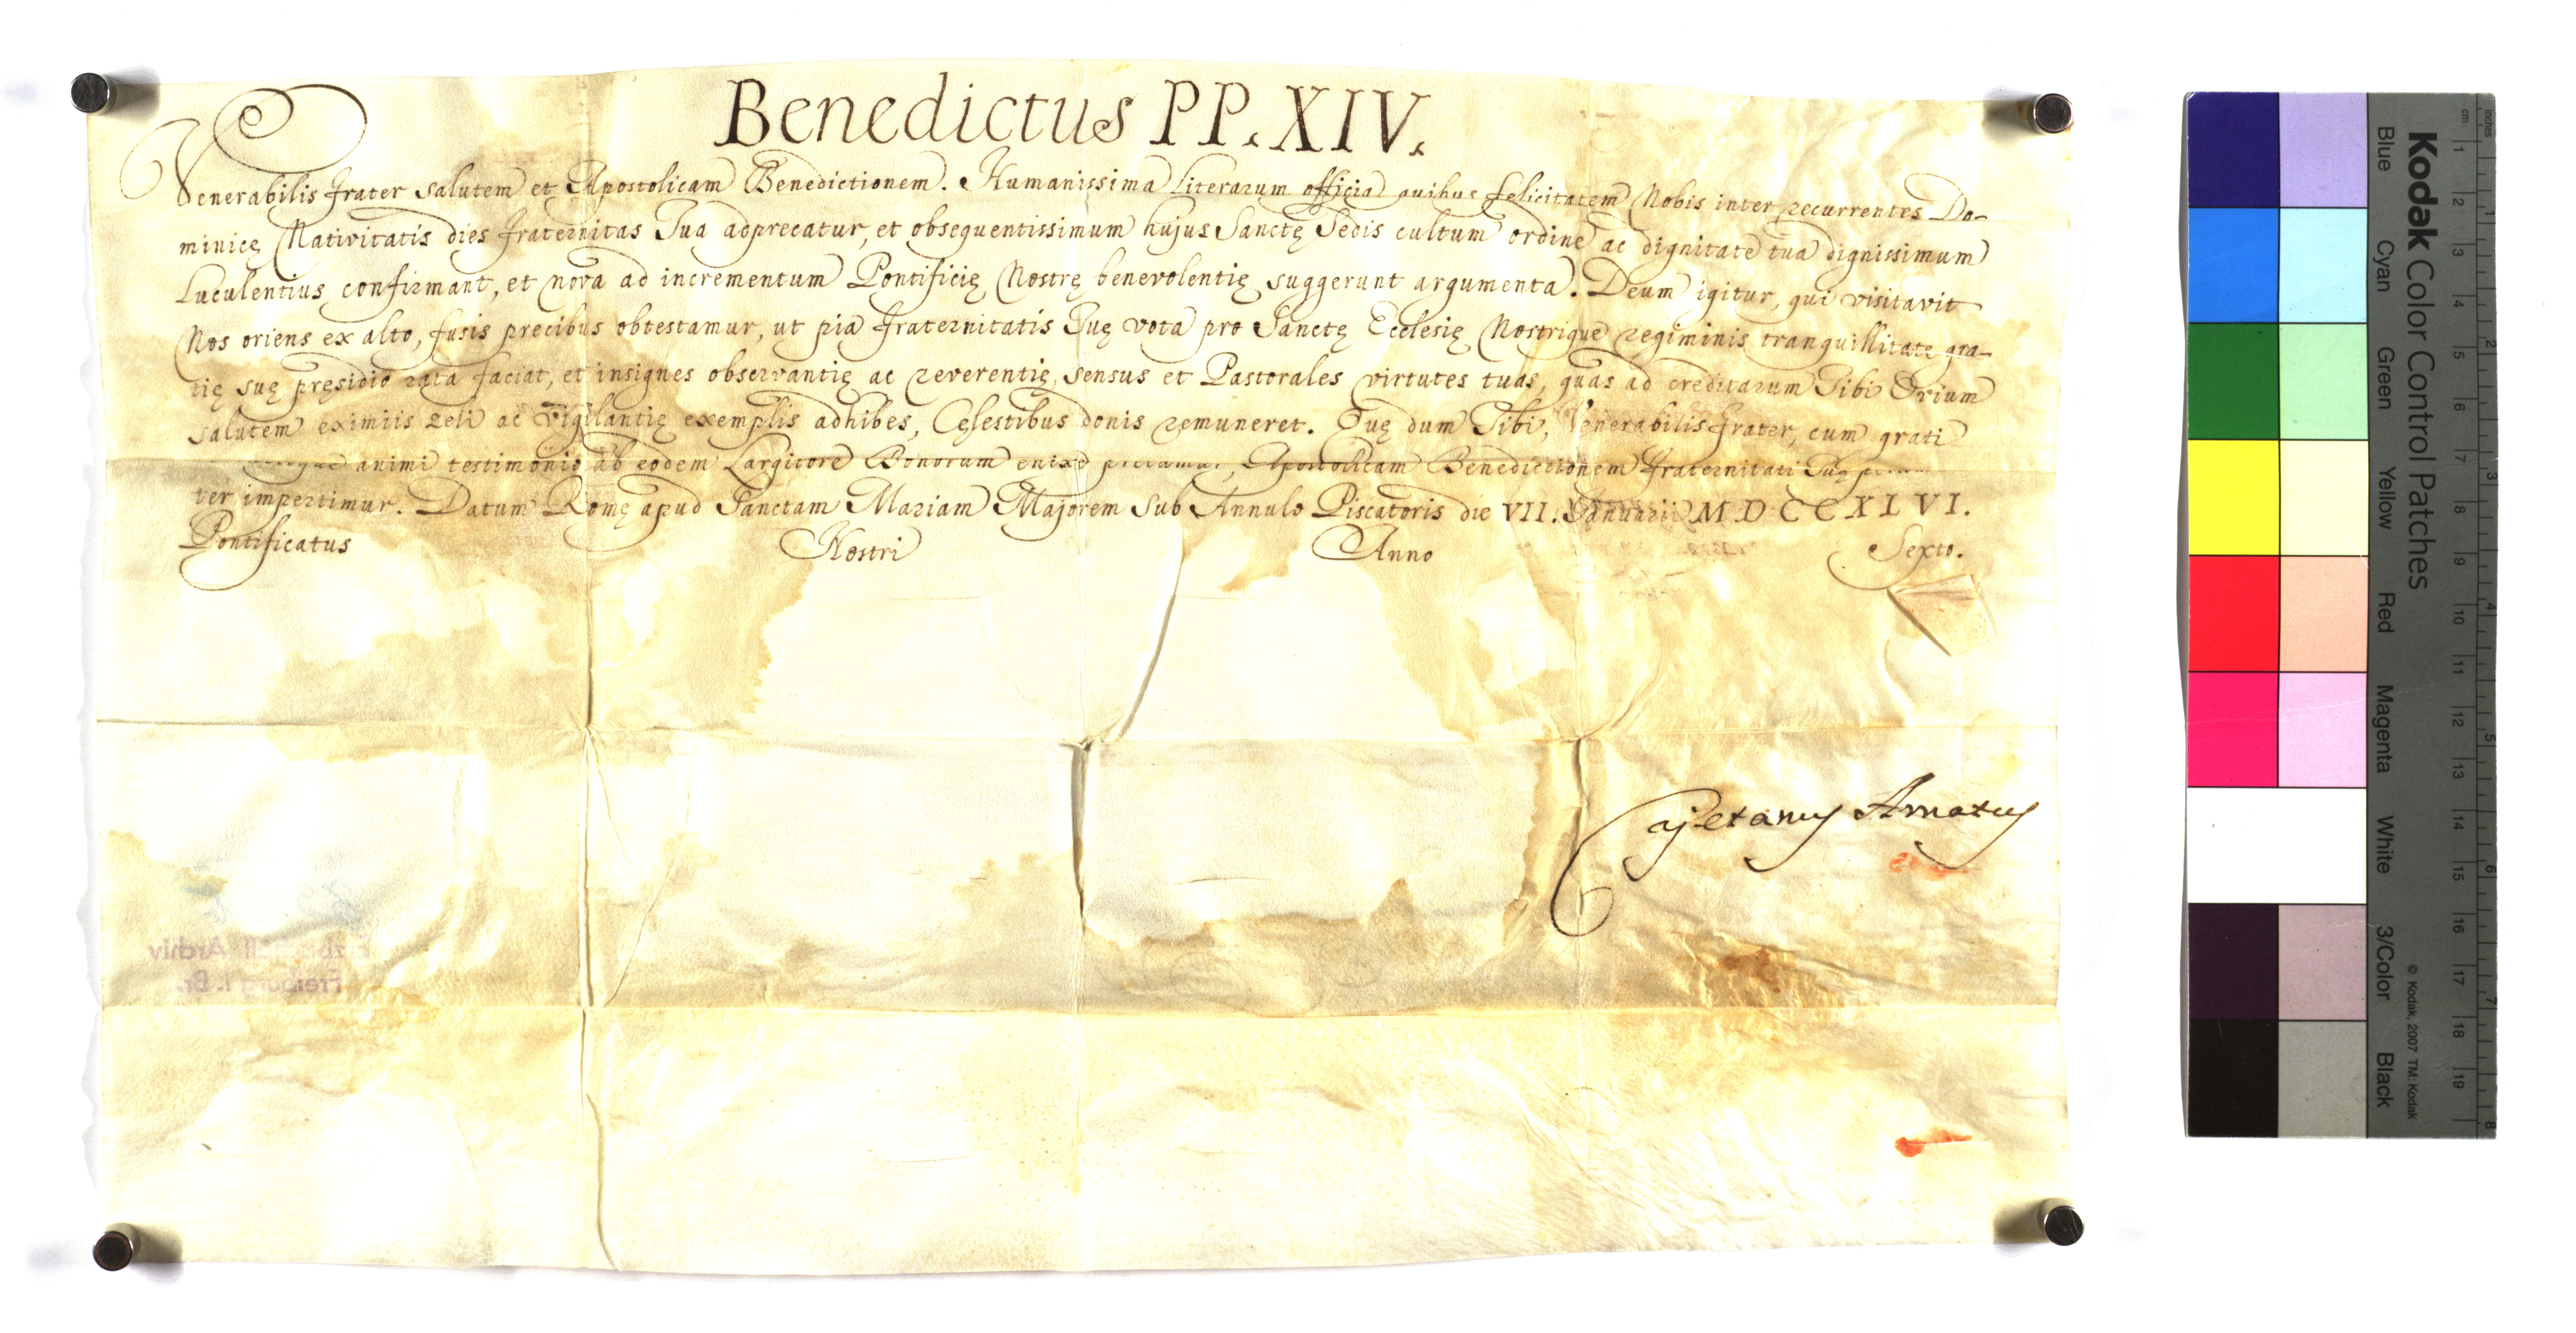 Benedictus PP. XIV.
Venerabilis Frater salutem et Apostolicam Benedictionem. Humanissima Literarum officia quibus felicitatem Nobis inter recurrentes Do-
minicę Nativitatis dies Fraternitas Tua adprecatur, et obsequentissimum hujus Sanctę Sedis cultum ordine ac dignitate tua dignissimum
Luculentius confirmant, et nova ad incrementum Pontificię Nostrę benevolentię suggerunt argumenta. Deum igitur, qui visitavit
Nos oriens ex alto, fusis precibus obtestamur, ut pia Fraternitatis Tuę vota pro Sanctę Ecclesię Nostrique regiminis tranquillitate gra-
tię suę pręsidio rata faciat, et insignes observantię ac reverentię sensus et Pastorales virtutes tuas, quas ad creditarum Tibi Ovium
salutem eximiis zeli ac vigilantię exemplis adhibes, Cęlestibus donis remuneret. Quę dum Tibi, Venerabilis Frater, cum grati
animi testimonio ab eodem Largitore Bonorum enixe precamur, Apostolicam Benedictionem Fraternitati Tuę
ter impertimur. Datum Romę apud Sanctam Mariam Majorem sub Annulo Piscatoris die VII. Januarii MDCCXLVI.
Pontificatus Nostri Anno Sexto.
Cajetanus Amatus
Archiv
Freiburg i. Br.
Kodak Color Control Patches
Blue Cyan Green Yellow Red Magenta White 3/Color Black
© Kodak, 2007 TM: Kodak
cm 1 2 3 4 5 6 7 8 9 10 11 12 13 14 15 16 17 18 19
inches 1 2 3 4 5 6 7 8